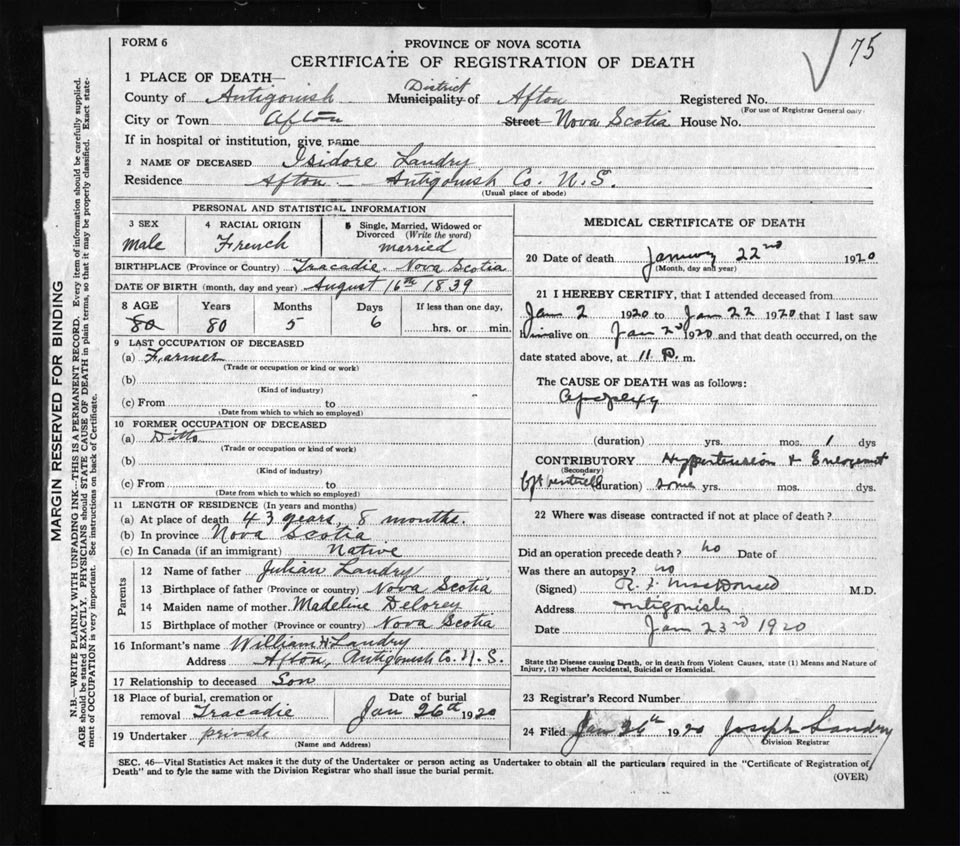 FORM 6
75
PROVINCE OF NOVA SCOTIA
CERTIFICATE OF REGISTRATION OF DEATH
1 PLACE OF DEATH—
County of Antigonish District Municipality of Afton Registered No.
(For use of Registrar General only)
City or Town Afton Street Nova Scotia House No.
If in hospital or institution, give name
2 NAME OF DECEASED Isidore Landry
Residence Afton Antigonish Co. N.S.
(Usual place of abode)
PERSONAL AND STATISTICAL INFORMATION
3 SEX
male
4 RACIAL ORIGIN
French
5 Single, Married, Widowed or Divorced (Write the word)
married
BIRTHPLACE (Province or Country) Tracadie Nova Scotia
DATE OF BIRTH (month, day and year) August 16th 1839
8 AGE Years Months Days If less than one day,
80 80 5 6 hrs. or min.
9 LAST OCCUPATION OF DECEASED
(a) Farmer
(Trade or occupation or kind or work)
(b)
(Kind of industry)
(c) From to
(Date from which to which so employed)
10 FORMER OCCUPATION OF DECEASED
(a) Ditto
(Trade or occupation or kind or work)
(b)
(Kind of industry)
(c) From to
(Date from which to which so employed)
11 LENGTH OF RESIDENCE (In years and months)
(a) At place of death 43 years, 8 months.
(b) In province Nova Scotia
(c) In Canada (if an immigrant) Native
Parents
12 Name of father Julian Landry
13 Birthplace of father (Province or country) Nova Scotia
14 Maiden name of mother Madeline Delorey
15 Birthplace of mother (Province or country) Nova Scotia
16 Informant's name William H Landry
Address Afton, Antigonish Co. N.S.
17 Relationship to deceased Son
18 Place of burial, cremation or removal Tracadie
Date of burial
Jan 26th 1920
19 Undertaker private
(Name and Address)
MEDICAL CERTIFICATE OF DEATH
20 Date of death January 22nd 1920
(Month, day and year)
21 I HEREBY CERTIFY, that I attended deceased from
Jan 2 1920 to Jan 22 1920 that I last saw
him alive on Jan 2d 1920 and that death occurred, on the
date stated above, at 11 P. m.
The CAUSE OF DEATH was as follows:
Apoplexy
(duration) yrs. mos. 1 dys
CONTRIBUTORY Hypertension & Enlargement
(Secondary)
(duration) some yrs. mos. dys.
22 Where was disease contracted if not at place of death?
Did an operation precede death? no Date of
Was there an autopsy? no
(Signed) R. F. MacDonald M.D.
Address Antigonish
Date Jan 23rd 1920
State the Disease causing Death, or in death from Violent Causes, state (1) Means and Nature of
Injury, (2) whether Accidental, Suicidal or Homicidal.
23 Registrar's Record Number
24 Filed Jan 26th 1920 Joseph Landry
Division Registrar
SEC. 46—Vital Statistics Act makes it the duty of the Undertaker or person acting as Undertaker to obtain all the particulars required in the "Certificate of Registration of
Death" and to fyle the same with the Division Registrar who shall issue the burial permit.
(OVER)
MARGIN RESERVED FOR BINDING
N.B.—WRITE PLAINLY WITH UNFADING INK—THIS IS A PERMANENT RECORD. Every item of information should be carefully supplied.
AGE should be stated EXACTLY. PHYSICIANS should STATE CAUSE OF DEATH in plain terms, so that it may be properly classified. Exact state-
ment of OCCUPATION is very important. See instructions on back of Certificate.